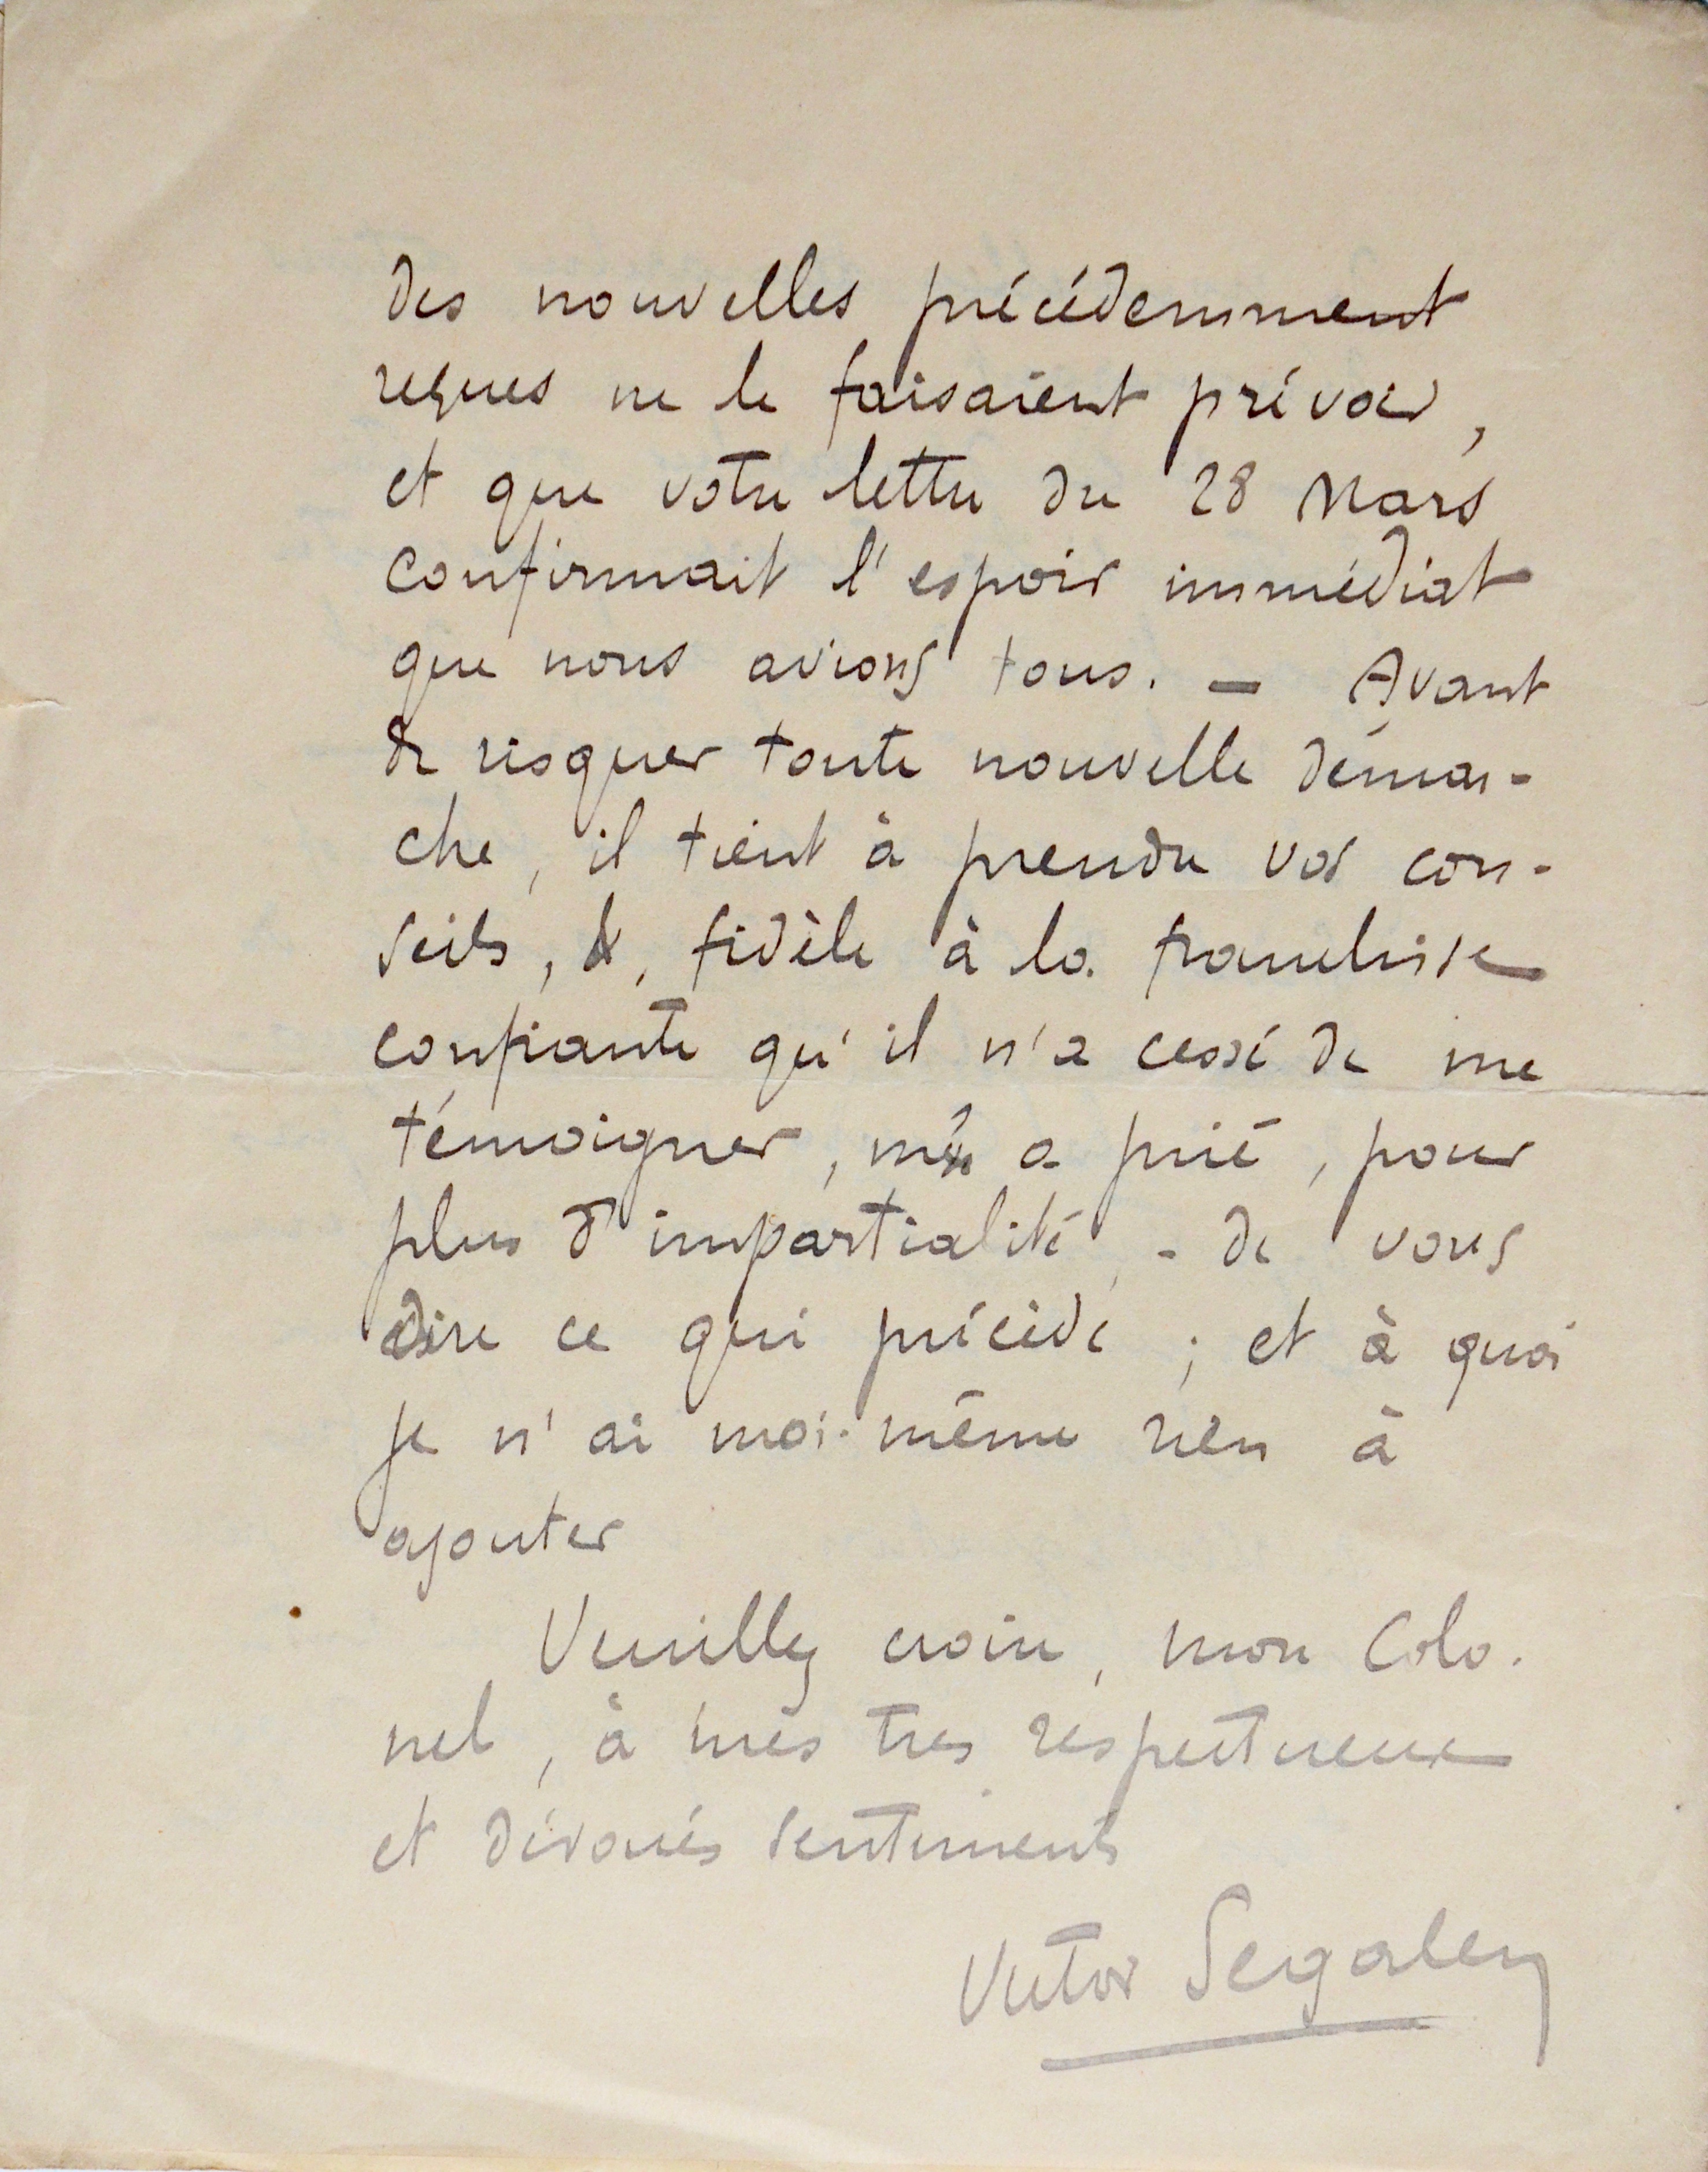 des nouvelles précédemment
reçues ne le faisaient prévoir,
et que votre lettre du 28 Mars
confirmait l'espoir immédiat
que nous avions tous. — Avant
de risquer toute nouvelle démar-
che, il tient à prendre vos con-
seils, &, fidèle à la franchise
confiante qu'il n'a cessé de me
témoigner, m'a prié, pour
plus d'impartialité, - de vous
dire ce qui précède ; et à quoi
je n'ai moi-même rien à
ajouter
Veuillez croire, mon Colo-
nel, à mes très respectueux
et dévoués sentiments
Victor Segalen